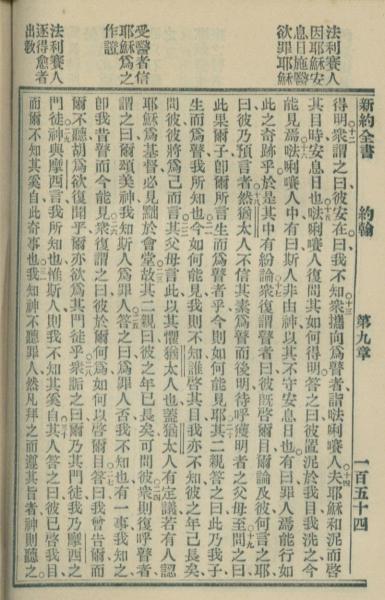 法利賽人
因耶穌安
息日施醫
欲罪耶穌
受醫者信
耶穌爲之
作證
法利賽人
逐得愈者
出教
新約全書 約翰 第九章 一百五十四
得明衆謂之曰彼安在曰我不知衆攜向爲瞽者詣㕸唎賽人夫耶穌和泥而啓
其目時安息日也㕸唎賽人復問其如何得明答之曰彼置泥於我目我洗之今
能見焉㕸唎賽人中有曰斯人非由神以其不守安息日也有曰罪人焉能行如
此之奇跡乎於是其中有紛論衆復謂瞽者曰彼旣啓爾目爾論及彼何言之耶
曰彼乃預言者然猶太人不信其素爲瞽而後明待呼獲明者之父母至問之曰
此果爾子卽爾所言生而爲瞽者乎今則如何能見耶其二親答之曰此乃我子
生而爲瞽我所知也今如何能見我則不知誰啓其目我亦不知彼之年已長矣
問彼彼將爲己而言其父母言此以其懼猶太人也蓋猶太人有定議若有人認
耶穌爲基督必見黜於會堂故其二親曰彼之年已長矣可問彼衆則復呼瞽者
謂之曰爾頌美神我知斯人爲罪人答之曰其爲罪人否我不知也有一事我知之
卽我昔瞽而今能見衆復謂之曰彼於爾何爲如何以啓爾目答曰我曾告爾而
爾不聽胡爲欲復聞乎爾亦欲爲其門徒乎衆詬之曰爾乃其門徒我乃摩西之
門徒神與摩西言我所知也惟斯人則我不知其奚自其人答之曰彼已啓我目
而爾不知其奚自此奇事也我知神不聽罪人然凡拜之而遵其旨者神則聽之